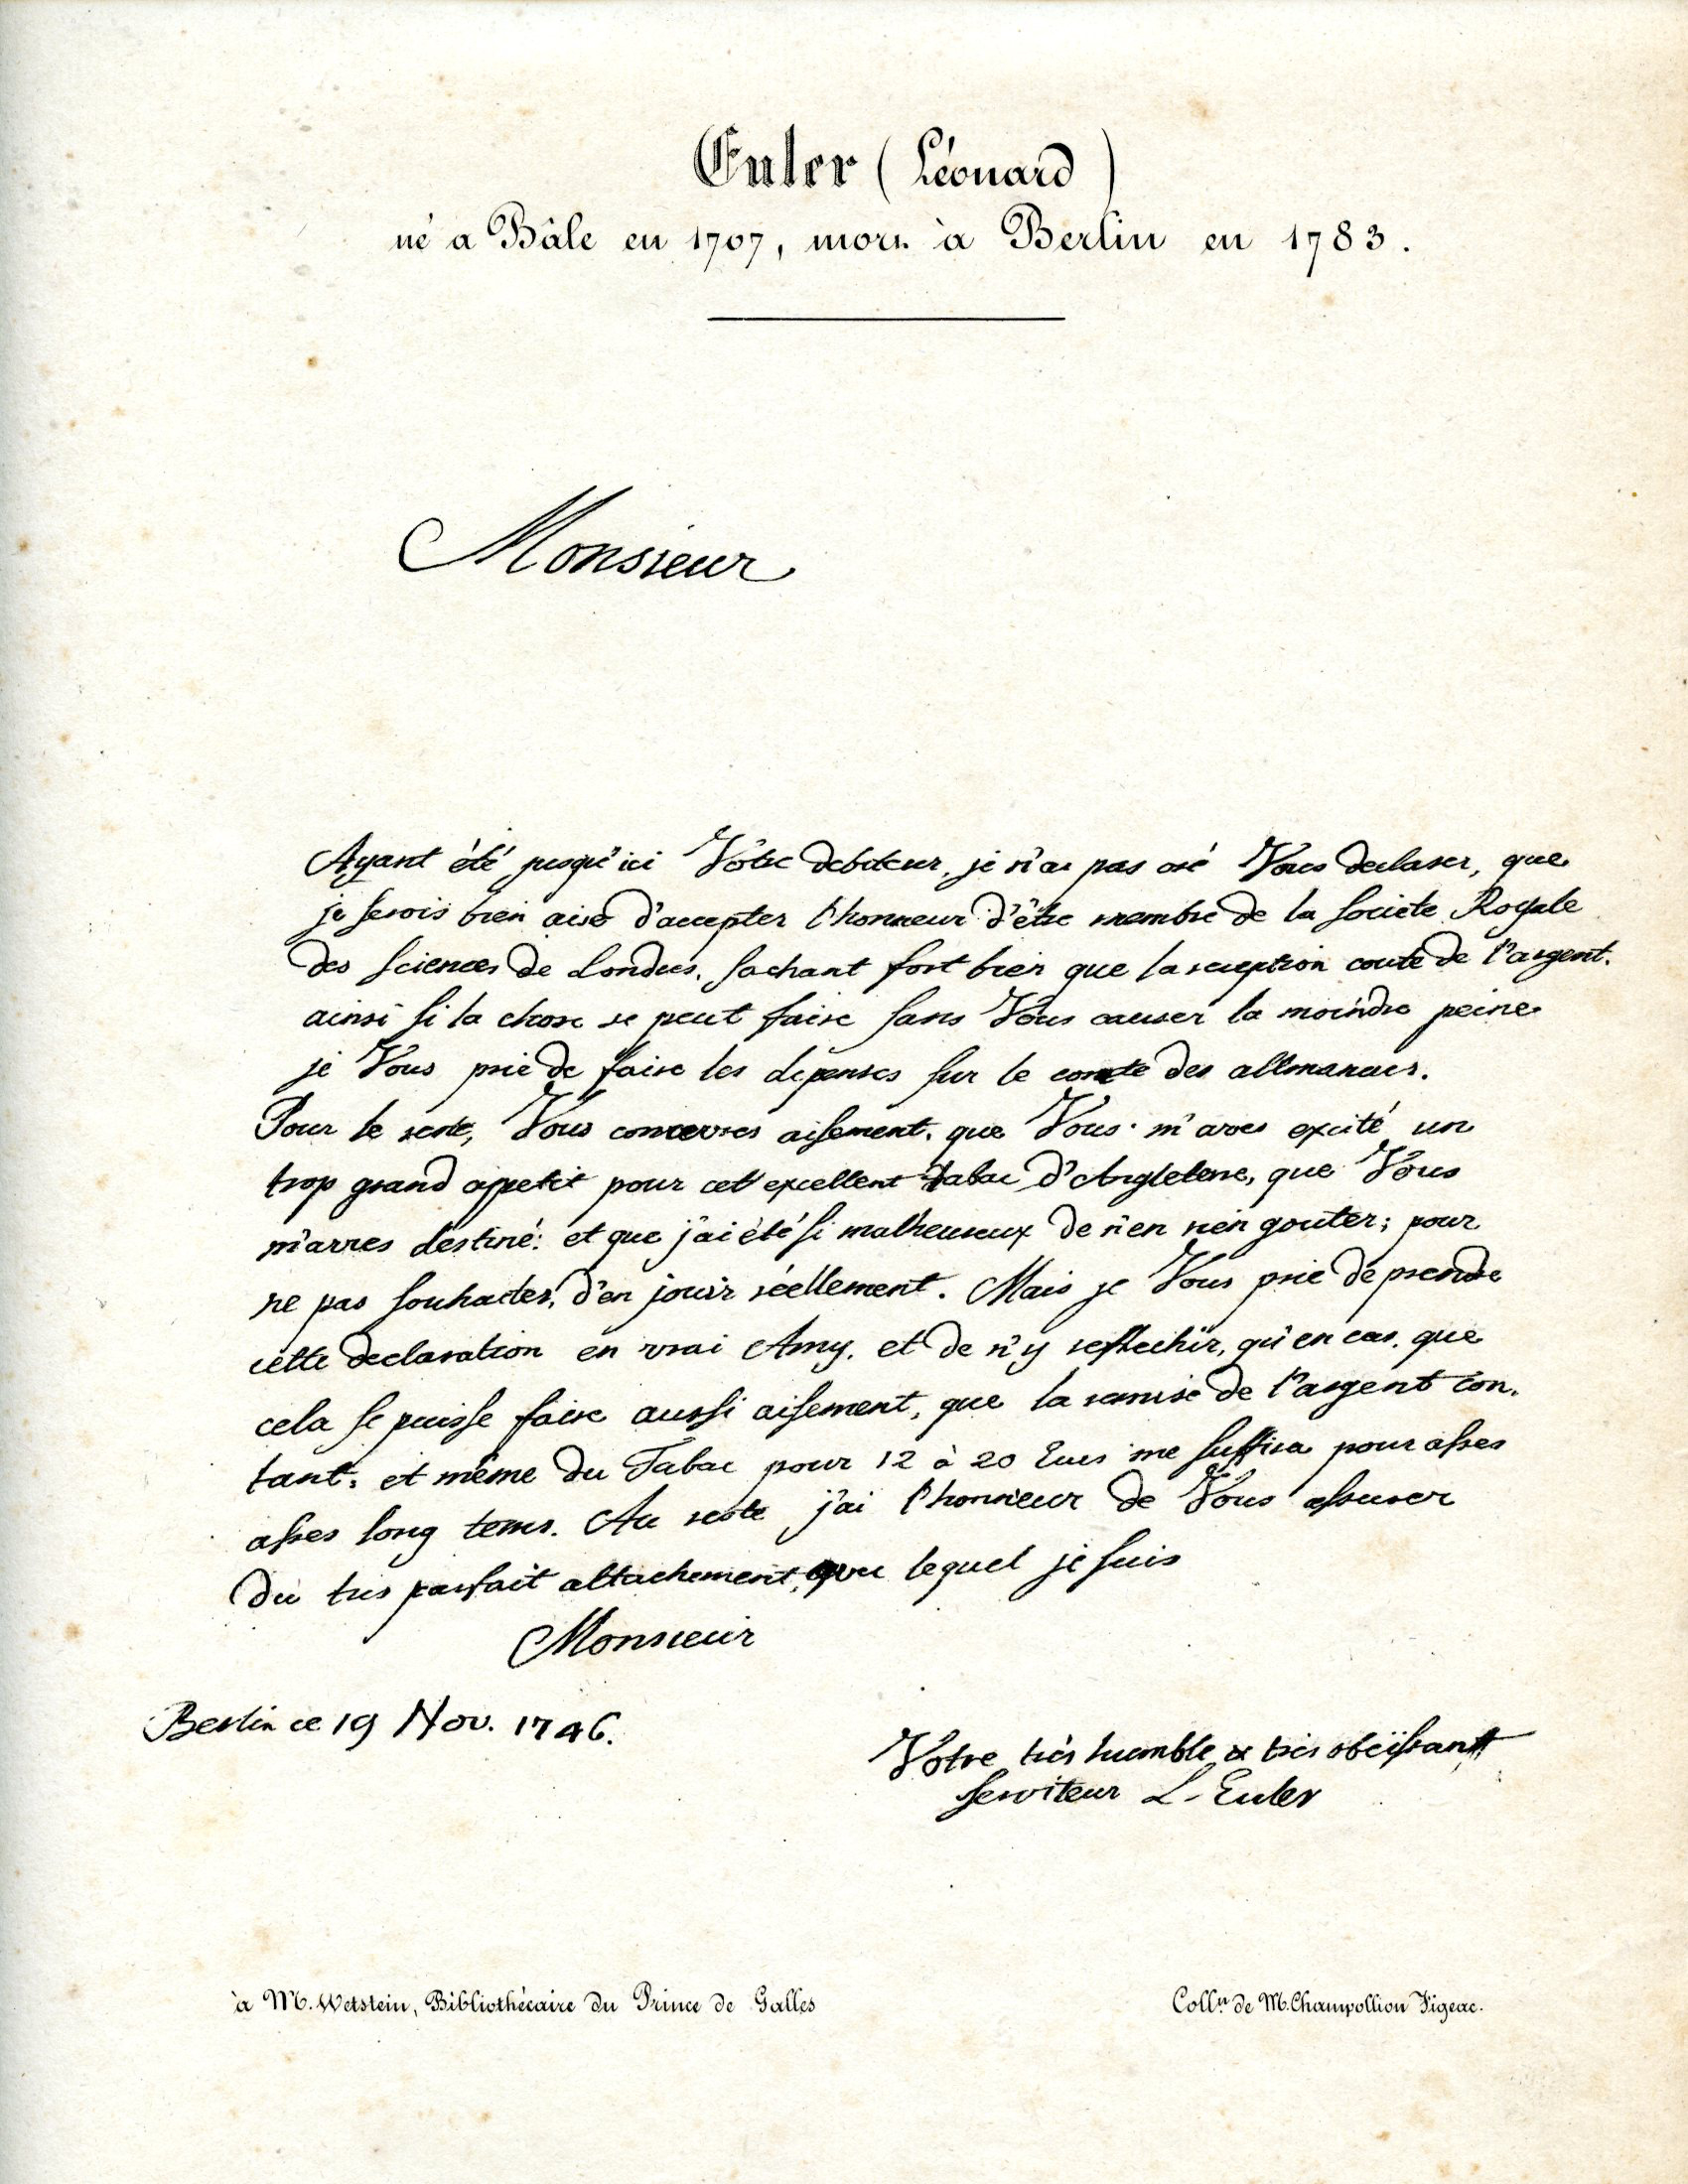 Euler (Léonard)
né a Bâle en 1707, mort à Berlin en 1783.
Monsieur
Ayant été jusqu'ici Vôtre debiteur, je n'ai pas osé Vous declarer, que
je serois bien aise d'accepter l'honneur d'être membre de la Societe Royale
des Sciences de Londres, sachant fort bien que la reception coute de l'argent.
ainsi si la chose se peut faire sans Vous causer la moindre peine
je Vous prie de faire les depenses sur le comte des allmanacs.
Pour le reste, Vous concevres aisement, que Vous m'aves excité un
trop grand appetit pour cet excellent Tabac d'Angleterre, que Vous
m'avies destiné: et que j'ai été si malheureux de n'en rien gouter; pour
ne pas souhaiter, d'en jouir réellement. Mais je Vous prie de prendre
cette declaration en vrai Amy, et de n'y reflechir, qu'en cas, que
cela se puisse faire aussi aisement, que la remise de l'argent con-
tant: et même du Tabac pour 12 à 20 Ecus me suffira pour asses
asses long tems. Au reste j'ai l'honneur de Vous assurer
du tres parfait attachement, avec lequel je suis
Monsieur
Berlin ce 19 Nov. 1746.
Votre très humble & très obeïssant
serviteur L. Euler
à M. Wetstein, Bibliothécaire du Prince de Galles
Coll.n de M. Champollion Figeac.